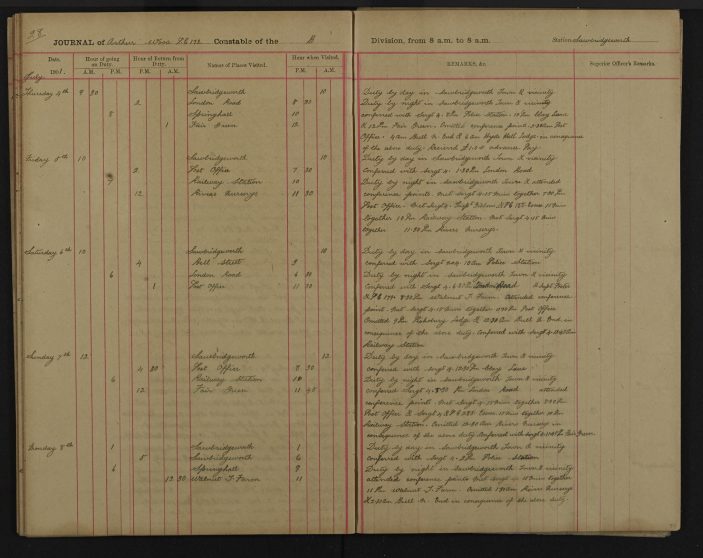 28
JOURNAL of Arthur Wood P.C. 172 Constable of the A Division, from 8 a.m. to 8 a.m. Station Sawbridgeworth
Date. Hour of going on Duty. Hour of Return from Duty. Names of Places Visited. Hour when Visited. REMARKS, &c. Superior Officer's Remarks.
July 1901. A.M. P.M. A.M. P.M. P.M. A.M.
Thursday 4th 9 30 Sawbridgeworth 10 Duty by day in Sawbridgeworth Town & vicinity
2 London Road 8 30 Duty by night in Sawbridgeworth Town & vicinity
8 Springhall 10 conferred with Sergt 4. Police Station. 10 Pm Clay Lane
1 Fair Green 12 & 12 Pm Fair Green. Omitted conference point. Post
Office. 4 am & End & 6 am Hyde Hall Lodge in consequence
of the above duty. Received advance Pay.
Friday 5th 10 Sawbridgeworth 10 Duty by day in Sawbridgeworth Town & vicinity
2 Post Office 7 30 Conferred with Sergt 4. 1.30 Pm London Road
7 Railway Station 10 Duty by night in Sawbridgeworth Town & attended
12 Rivers Nurserys 11 30 conference points. Met Sergt 4. 15 mins together 7.30 Pm
Post Office. Met Sergt 4. 15 mins
together 10 Pm Railway Station. Met Sergt 4 15 mins
together 11.30 Pm Rivers Nurserys.
Saturday 6th 10 Sawbridgeworth 10 Duty by day in Sawbridgeworth Town & vicinity
4 Bell Street 2 conferred with Sergt 4 Police Station
6 London Road 6 30 Duty by night in Sawbridgeworth Town & vicinity
1 Post Office 11 30 Conferred with Sergt 4. 6.30 Pm London Road
Walnut T. Farm. Attended conference
point. Met Sergt 4. 15 mins together Post Office
Omitted 9 Pm Lodge & 12.30 am Bull & End in
consequence of the above duty. Conferred with Sergt 4.
Railway Station
Sunday 7th 12 Sawbridgeworth 12 Duty by day in Sawbridgeworth Town & vicinity
4 30 Post Office 7 30 conferred with Sergt 4. 12.30 Pm Clay Lane
6 Railway Station 10 Duty by night in Sawbridgeworth Town & vicinity
12 Fair Green 11 45 conferred Sergt 4. Pm London Road attended
conference points. Met Sergt 4. 15 mins together
Post Office & Sergt 4 & P.C. 15 mins together 10 Pm
Railway Station. Omitted am Rivers Nurserys in
consequence of the above duty Conferred with Sergt 4 Fair Green
Monday 8th 1 Sawbridgeworth 1 Duty by day in Sawbridgeworth Town & vicinity
5 Sawbridgeworth 6 conferred with Sergt 4. Police Station
6 Springhall 9 Duty by night in Sawbridgeworth Town & vicinity
12 30 Walnut T. Farm 11 attended conference points Met Sergt 4 15 mins together
11 Pm Walnut T. Farm. Omitted Rivers Nurserys
& End in consequence of the above duty.